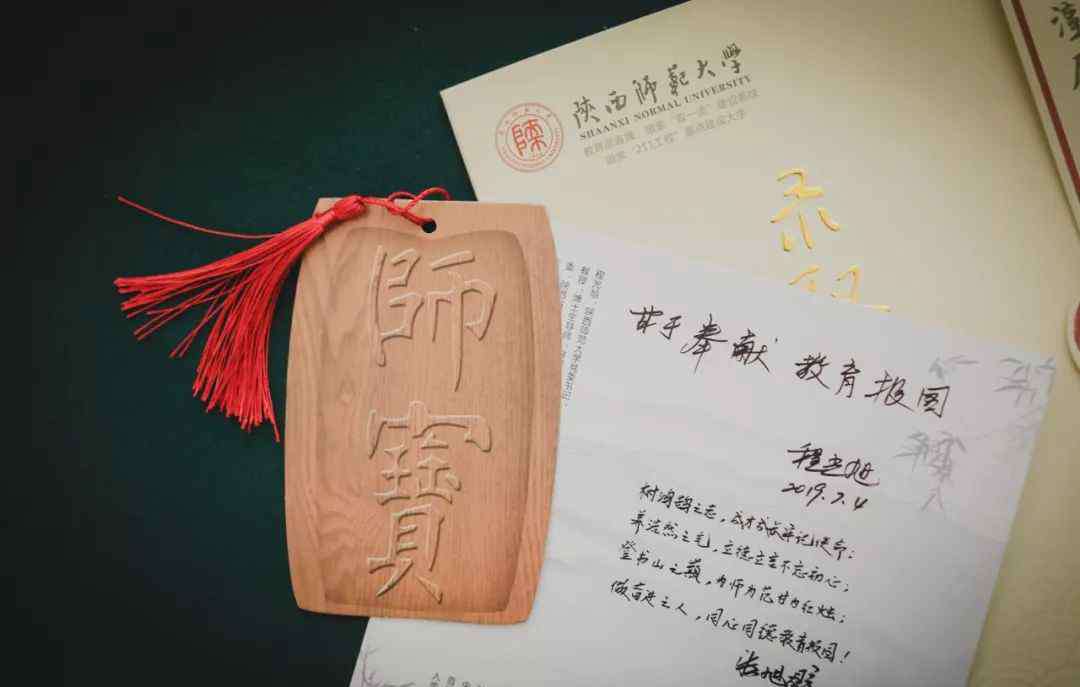 陝西師範大學
SHAANXI NORMAL UNIVERSITY
教育部直属、国家“双一流”建设高校
国家“211工程”重点建设大学
師寶
甘于奉献 教育报国
程光旭
2019.7.4
树鸿鹄之志，成才成长牢记使命；
养浩然之气，立德立言不忘初心；
登书山之巅，为师为范甘为红烛；
做奋进之人，同心同德教育报国！
程光旭，陕西师范大学党委书记，
教授，博士生导师，